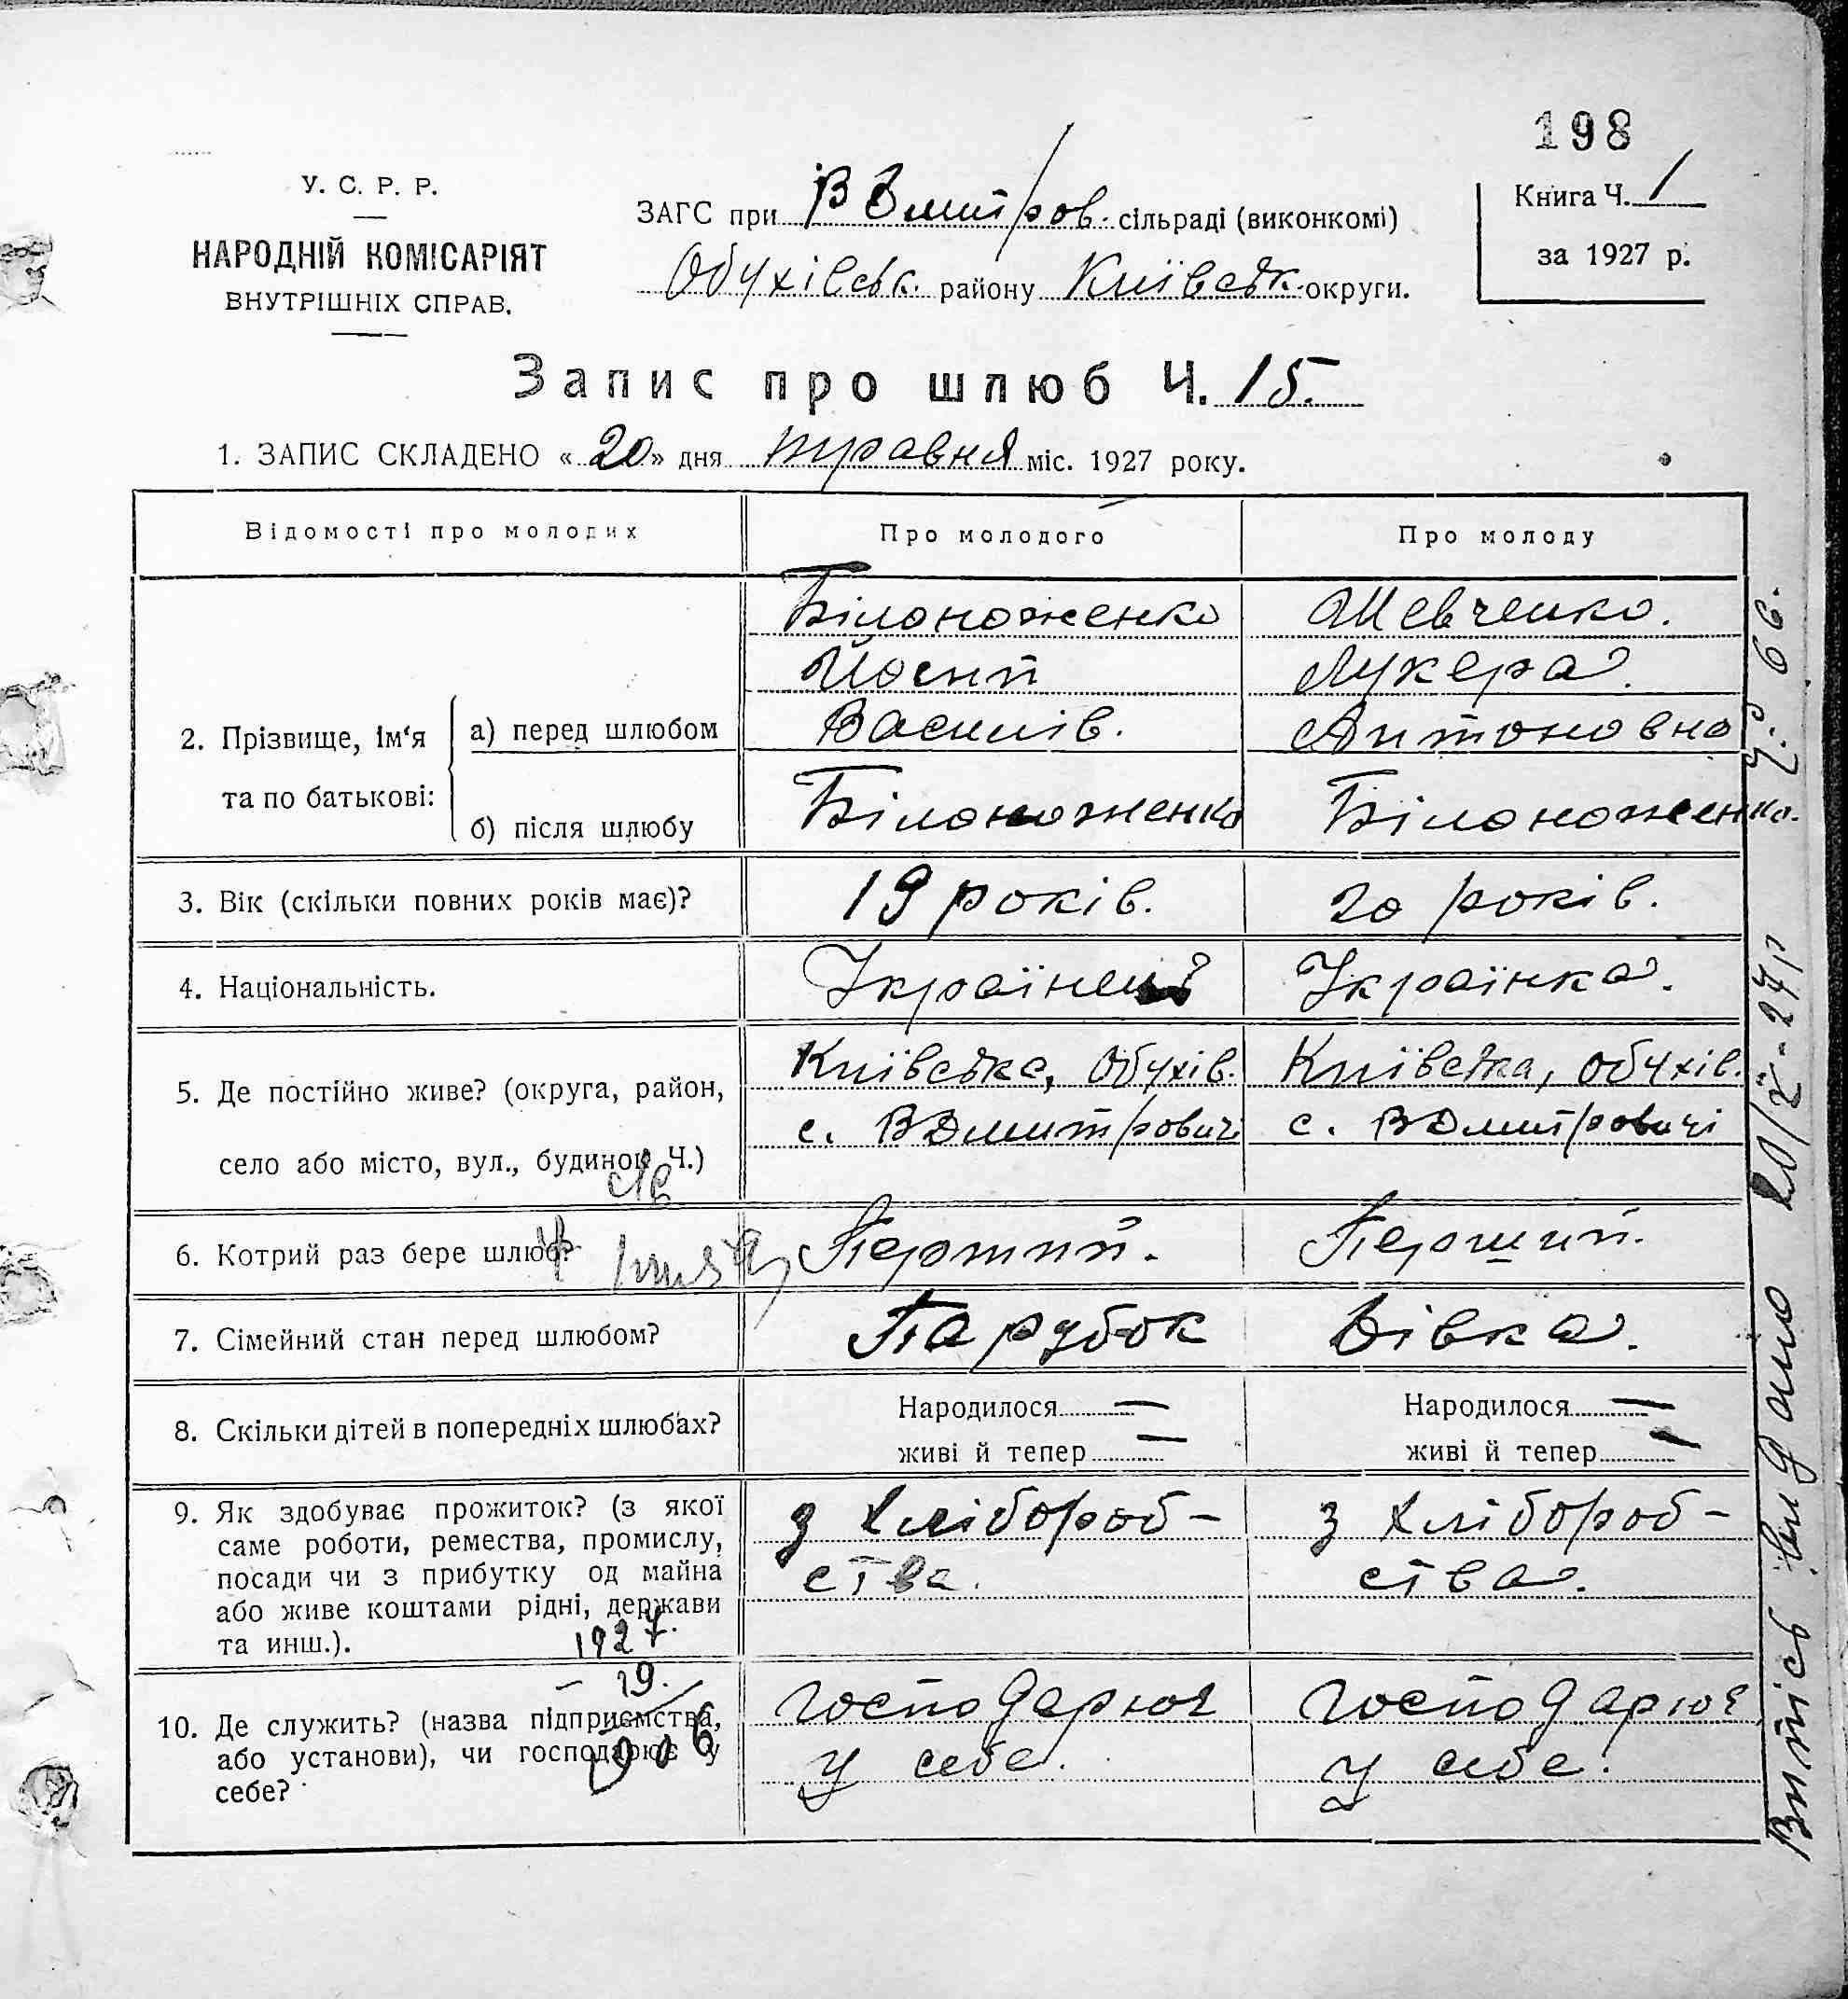 198
У. С. Р. Р.
НАРОДНІЙ КОМІСАРІЯТ
ВНУТРІШНІХ СПРАВ.
ЗАГС при В Дмитров. сільраді (виконкомі)
Обухівськ. району Київськ. округи.
Книга Ч. 1
за 1927 р.
Запис про шлюб Ч. 15.
1. ЗАПИС СКЛАДЕНО « 20 » дня травня міс. 1927 року.
Відомості про молодих
Про молодого
Про молоду
2. Прізвище, ім'я та по батькові:
а) перед шлюбом
Білоноженко
Йосип
Василів.
Шевченко.
Лукера.
Антоновна
б) після шлюбу
Білоноженко
Білоноженко.
3. Вік (скільки повних років має)?
19 років.
20 років.
4. Національність.
Українець
Українка.
5. Де постійно живе? (округа, район,
село або місто, вул., будинок Ч.)
Київська, Обухів.
с. ВДмитровичі
Київська, Обухів.
с. ВДмитровичі
6. Котрий раз бере шлюб?
Перший.
Перший.
7. Сімейний стан перед шлюбом?
Парубок
Дівка.
8. Скільки дітей в попередніх шлюбах?
Народилося —
живі й тепер —
Народилося —
живі й тепер —
9. Як здобуває прожиток? (з якої
саме роботи, ремества, промислу,
посади чи з прибутку од майна
або живе коштами рідні, держави
та инш.).
з хлібороб-
ства.
з хлібороб-
ства.
1927.
19.
906
10. Де служить? (назва підприємства,
або установи), чи господарює у
себе?
господарює
у себе.
господарює
у себе.
Випись видано 20/V-27р Ч. 66.